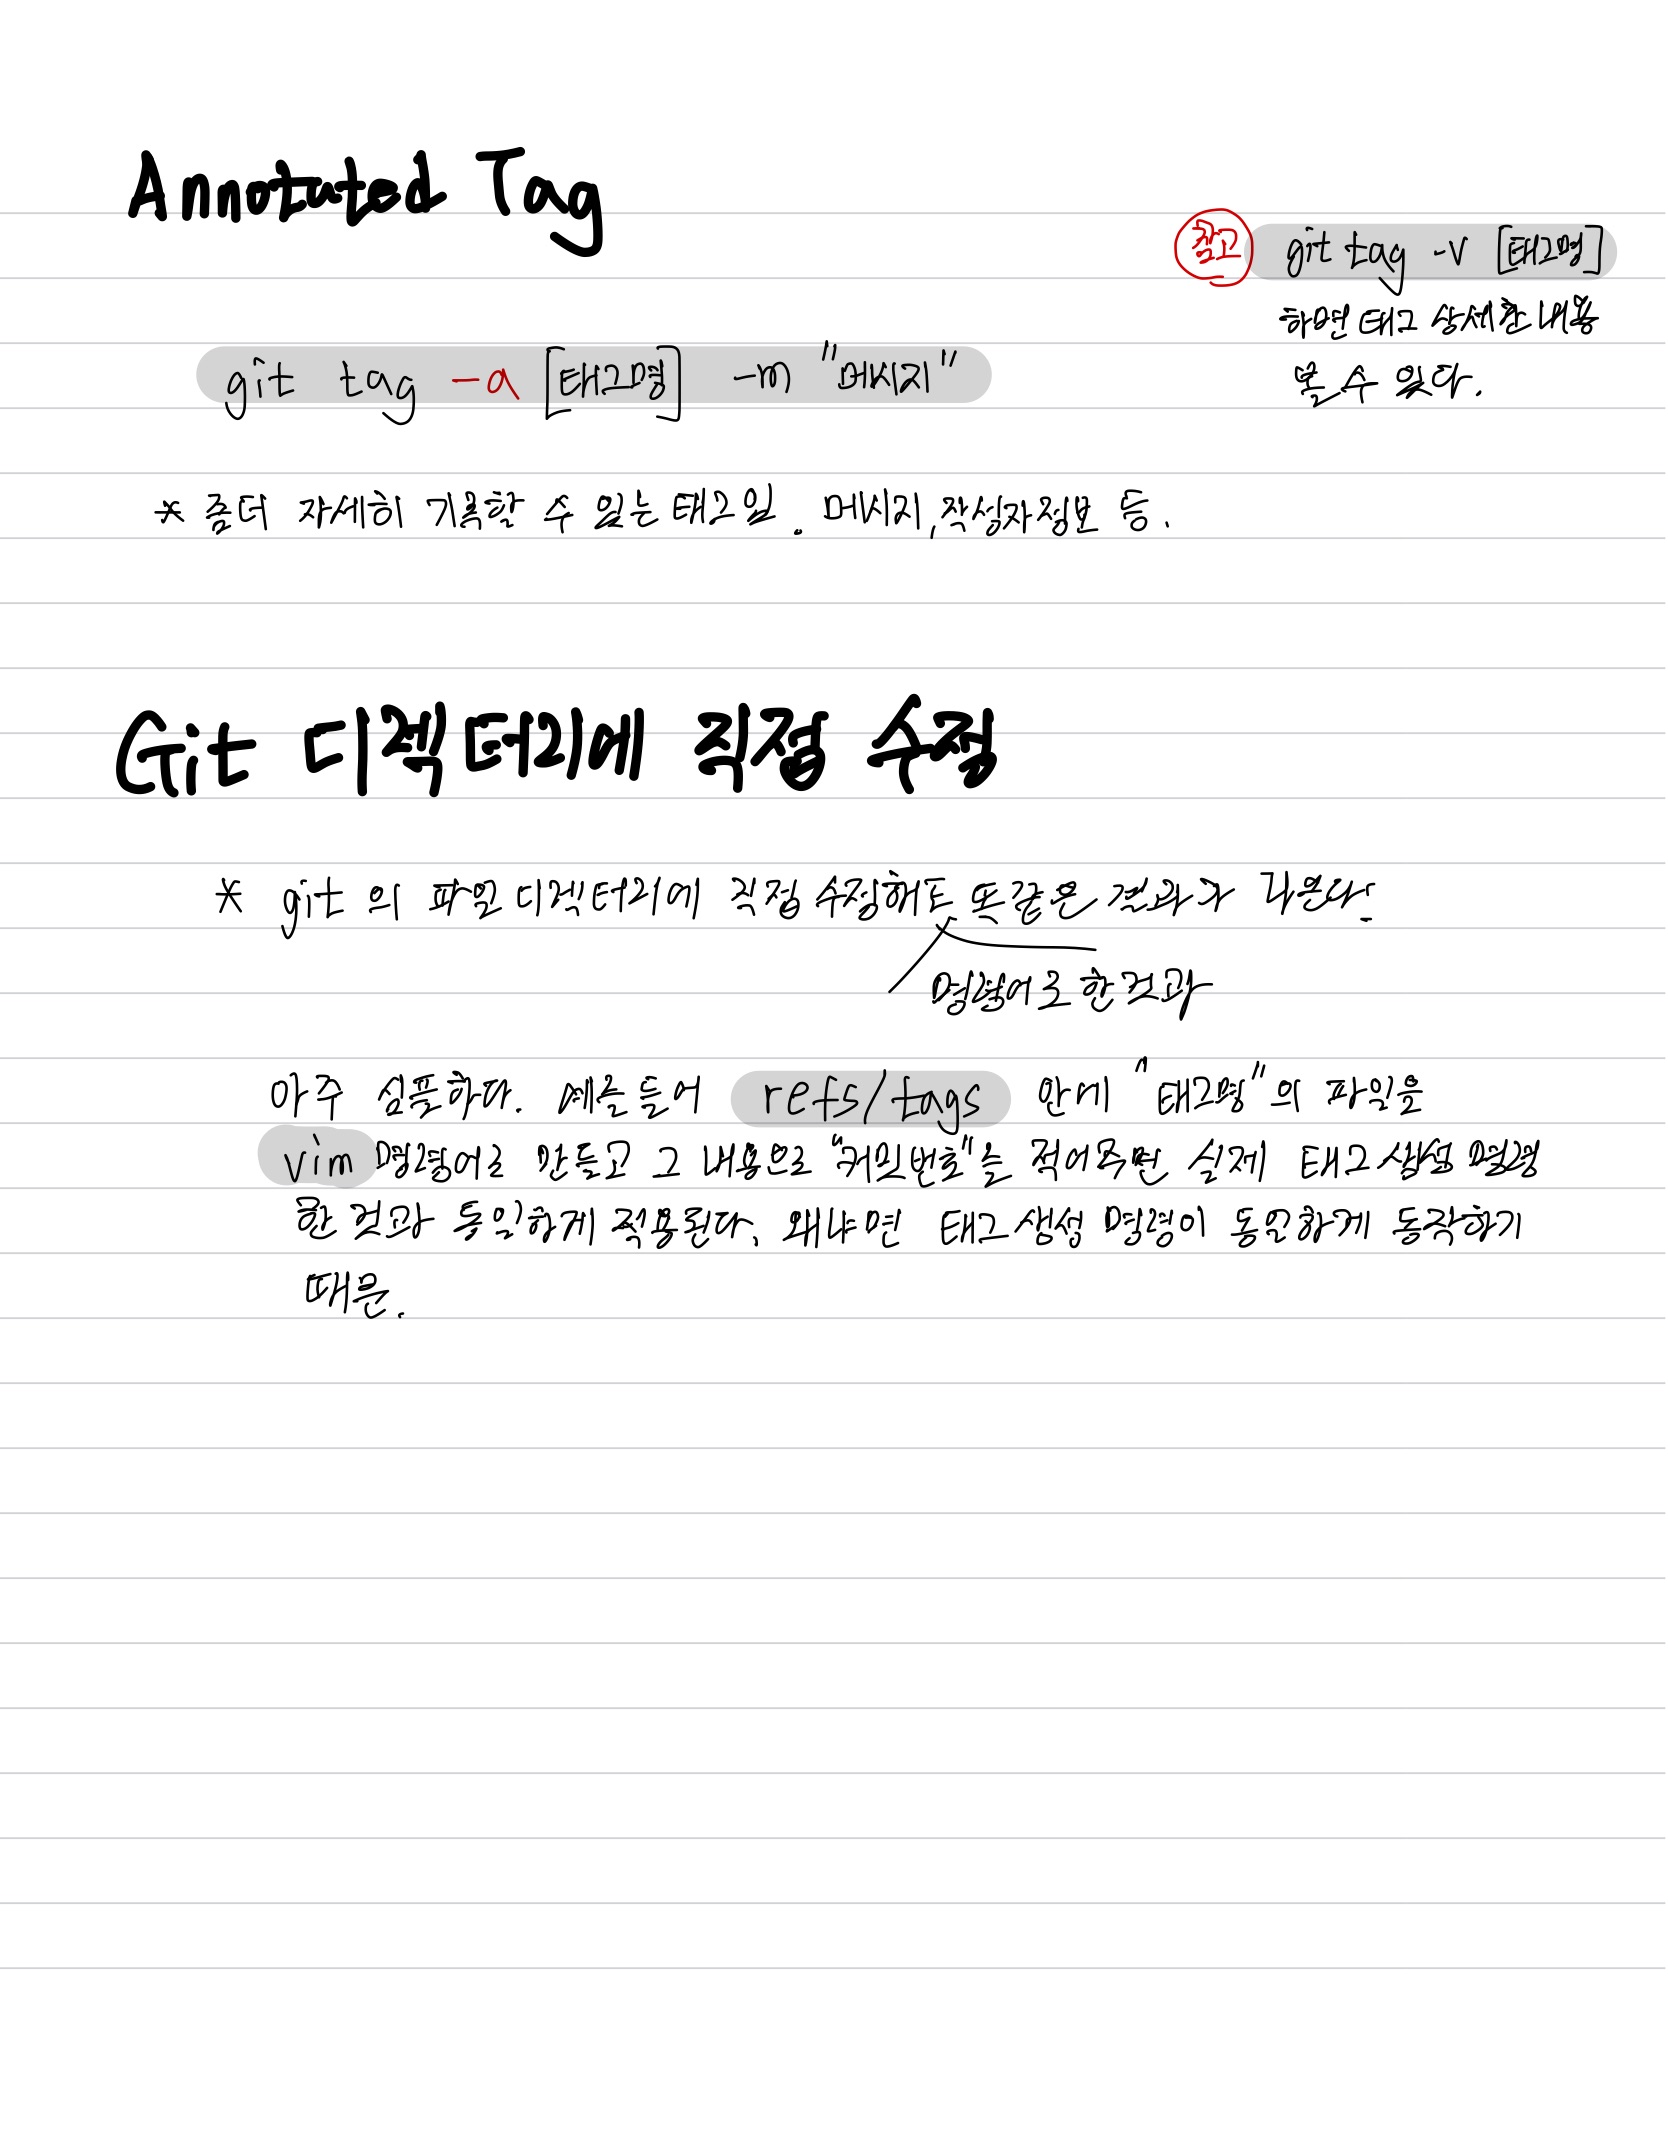 Annotated Tag
참고 git tag -v [태그명]
하면 태그 상세한 내용
볼 수 있다.
git tag -a [태그명] -m "메시지"
* 좀더 자세히 기록할 수 있는 태그임. 메시지, 작성자정보 등.
Git 디렉터리에 직접 수정
* git의 파일 디렉터리에 직접 수정해도 똑같은 결과가 나온다.
명령어로 한것과
아주 심플하다. 예를들어 refs/tags 안에 "태그명"의 파일을
vim 명령어로 만들고 그 내용으로 "커밋번호"를 적어주면 실제 태그생성 명령
한 것과 동일하게 적용된다. 왜냐면 태그생성 명령이 동일하게 동작하기
때문.